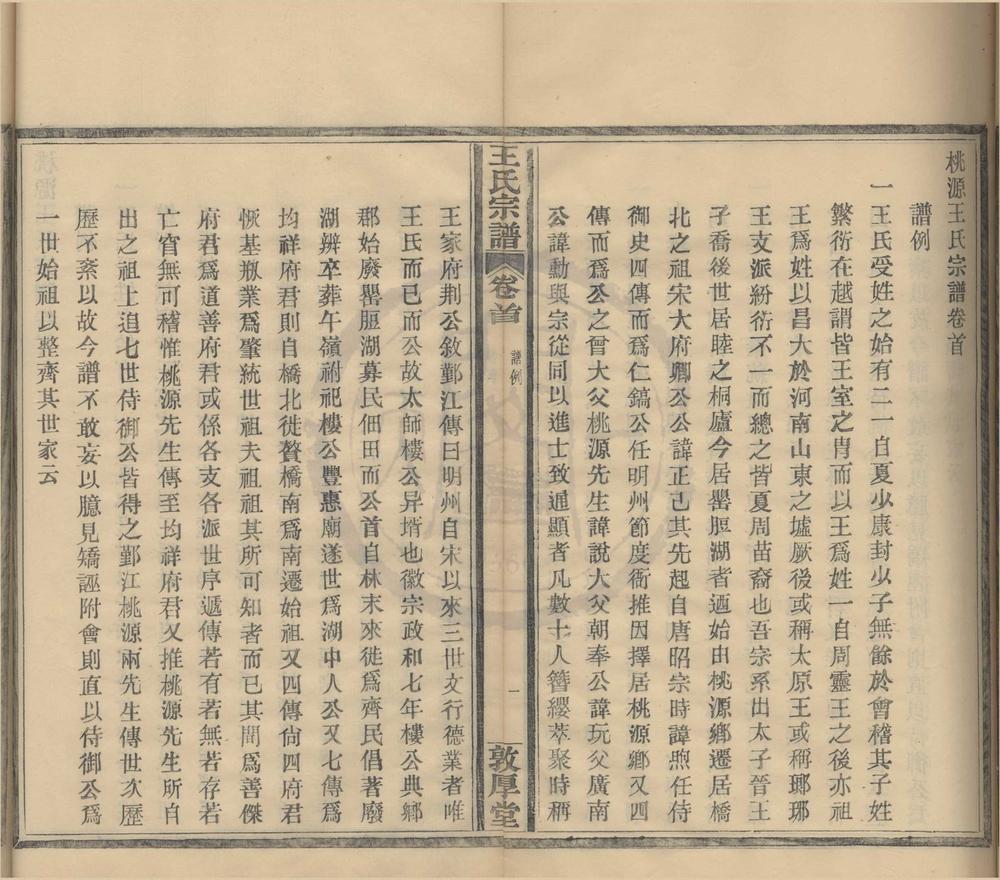 桃源王氏宗譜卷首
譜例
一王氏受姓之始有二一自夏少康封少子無餘於會稽其子姓
繁衍在越謂皆王室之胄而以王爲姓一自周靈王之後亦祖
王爲姓以昌大於河南山東之墟厥後或稱太原王或稱瑯琊
王支派紛衍不一而總之皆夏周苗裔也吾宗系出太子晉王
子喬後世居睦之桐廬今居罌脰湖者迺始由桃源鄉遷居橋
北之祖宋大府卿公公諱正己其先起自唐昭宗時諱煦任侍
御史四傳而爲仁鎬公任明州節度衙推因擇居桃源鄉又四
傳而爲公之曾大父桃源先生諱說大父朝奉公諱玩父廣南
公諱勳與宗從同以進士致通顯者凡數十人簪纓萃聚時稱
王氏宗譜
卷首
譜例
一
敦厚堂
王家府荆公敘鄞江傳曰明州自宋以來三世文行德業者唯
王氏而已而公故太師樓公异壻也徽宗政和七年樓公典鄉
郡始廢罌脰湖募民佃田而公首自林末來徙爲齊民倡著廢
湖辨卒葬午嶺祔祀樓公豐惠廟遂世爲湖中人公又七傳爲
均祥府君則自橋北徙贅橋南爲南遷始祖又四傳尙四府君
恢基刱業爲肇統世祖夫祖祖其所可知者而已其間爲善傑
府君爲道善府君或係各支各派世序遞傳若有若無若存若
亡窅無可稽惟桃源先生傳至均祥府君又推桃源先生所自
出之祖上追七世侍御公皆得之鄞江桃源兩先生傳世次歷
歷不紊以故今譜不敢妄以臆見矯誣附會則直以侍御公爲
一世始祖以整齊其世家云